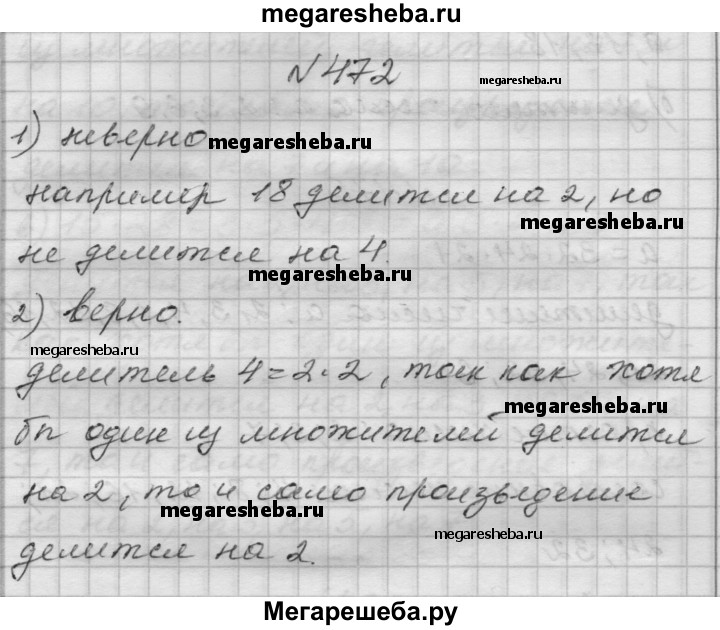 megaresheba.ru
N 472
megaresheba.ru
1) неверно
megaresheba.ru
например 18 делится на 2, но
megaresheba.ru
не делится на 4.
megaresheba.ru
2) верно.
megaresheba.ru
делитель 4 = 2 · 2, так как хотя
megaresheba.ru
бп один из множителей делится
на 2, то и само произьедение
megaresheba.ru
megaresheba.ru
делится на 2.
megaresheba.ru
Мегарешеба.ру